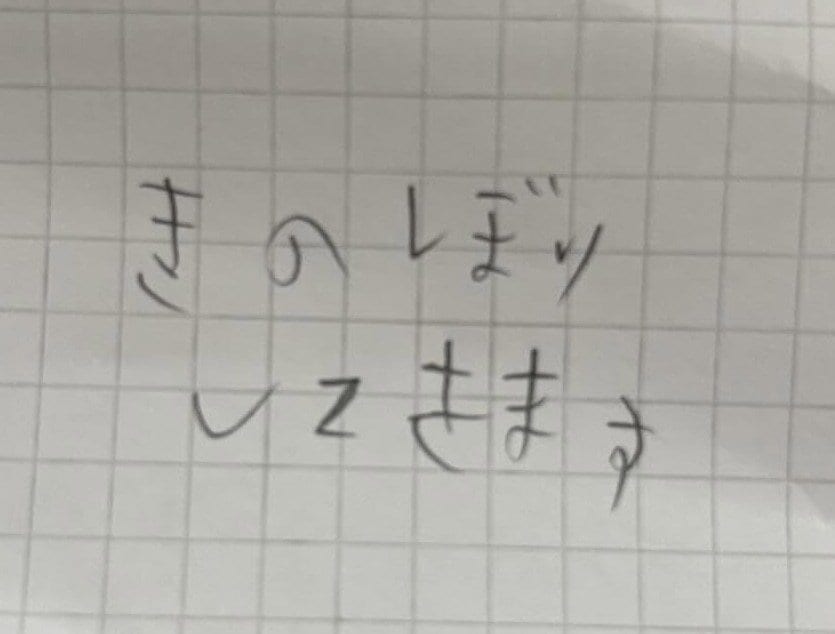 きのぼり
してきます